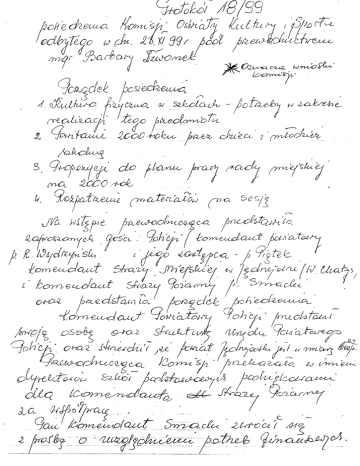 Protokół 18/99
posiedzenia Komisji Oświaty Kultury i Sportu
odbytego w dn. XI 99 r pod przewodnictwem
mgr Barbary
* Oznacza wnioski komisji
Porządek posiedzenia
1. Kultura fizyczna w szkołach - potrzeby w zakresie
realizacji tego przedmiotu
2. Powitanie 2000 roku przez dzieci i młodzież
szkolną
3. Propozycji do planu pracy rady miejskiej
na 2000 rok
4. Rozpatrzenie materiałów na sesję
Na wstępie przewodnicząca przedstawiła
zaproszonych gości: Policji / komendant powiatowy
p. R. i jego zastępca - p. Piątek
komendant Straży Miejskiej w Jędrzejowie /W.
i komendant Straży Pożarnej p. Smacki
oraz przedstawiła porządek posiedzenia
Komendant Powiatowy Policji przedstawił
swoją osobę oraz strukturę Powiatowego
Policji oraz stwierdził że powiat Jędrzejowski jest w miarę
Przewodnicząca Komisji przekazała w imieniu
dyrektorów szkół podstawowych podziękowania
dla Komendanta Straży Pożarnej
za współpracę.
Pan Komendant Smacki zwrócił się
z prośbą o uwzględnienie potrzeb finansowych.